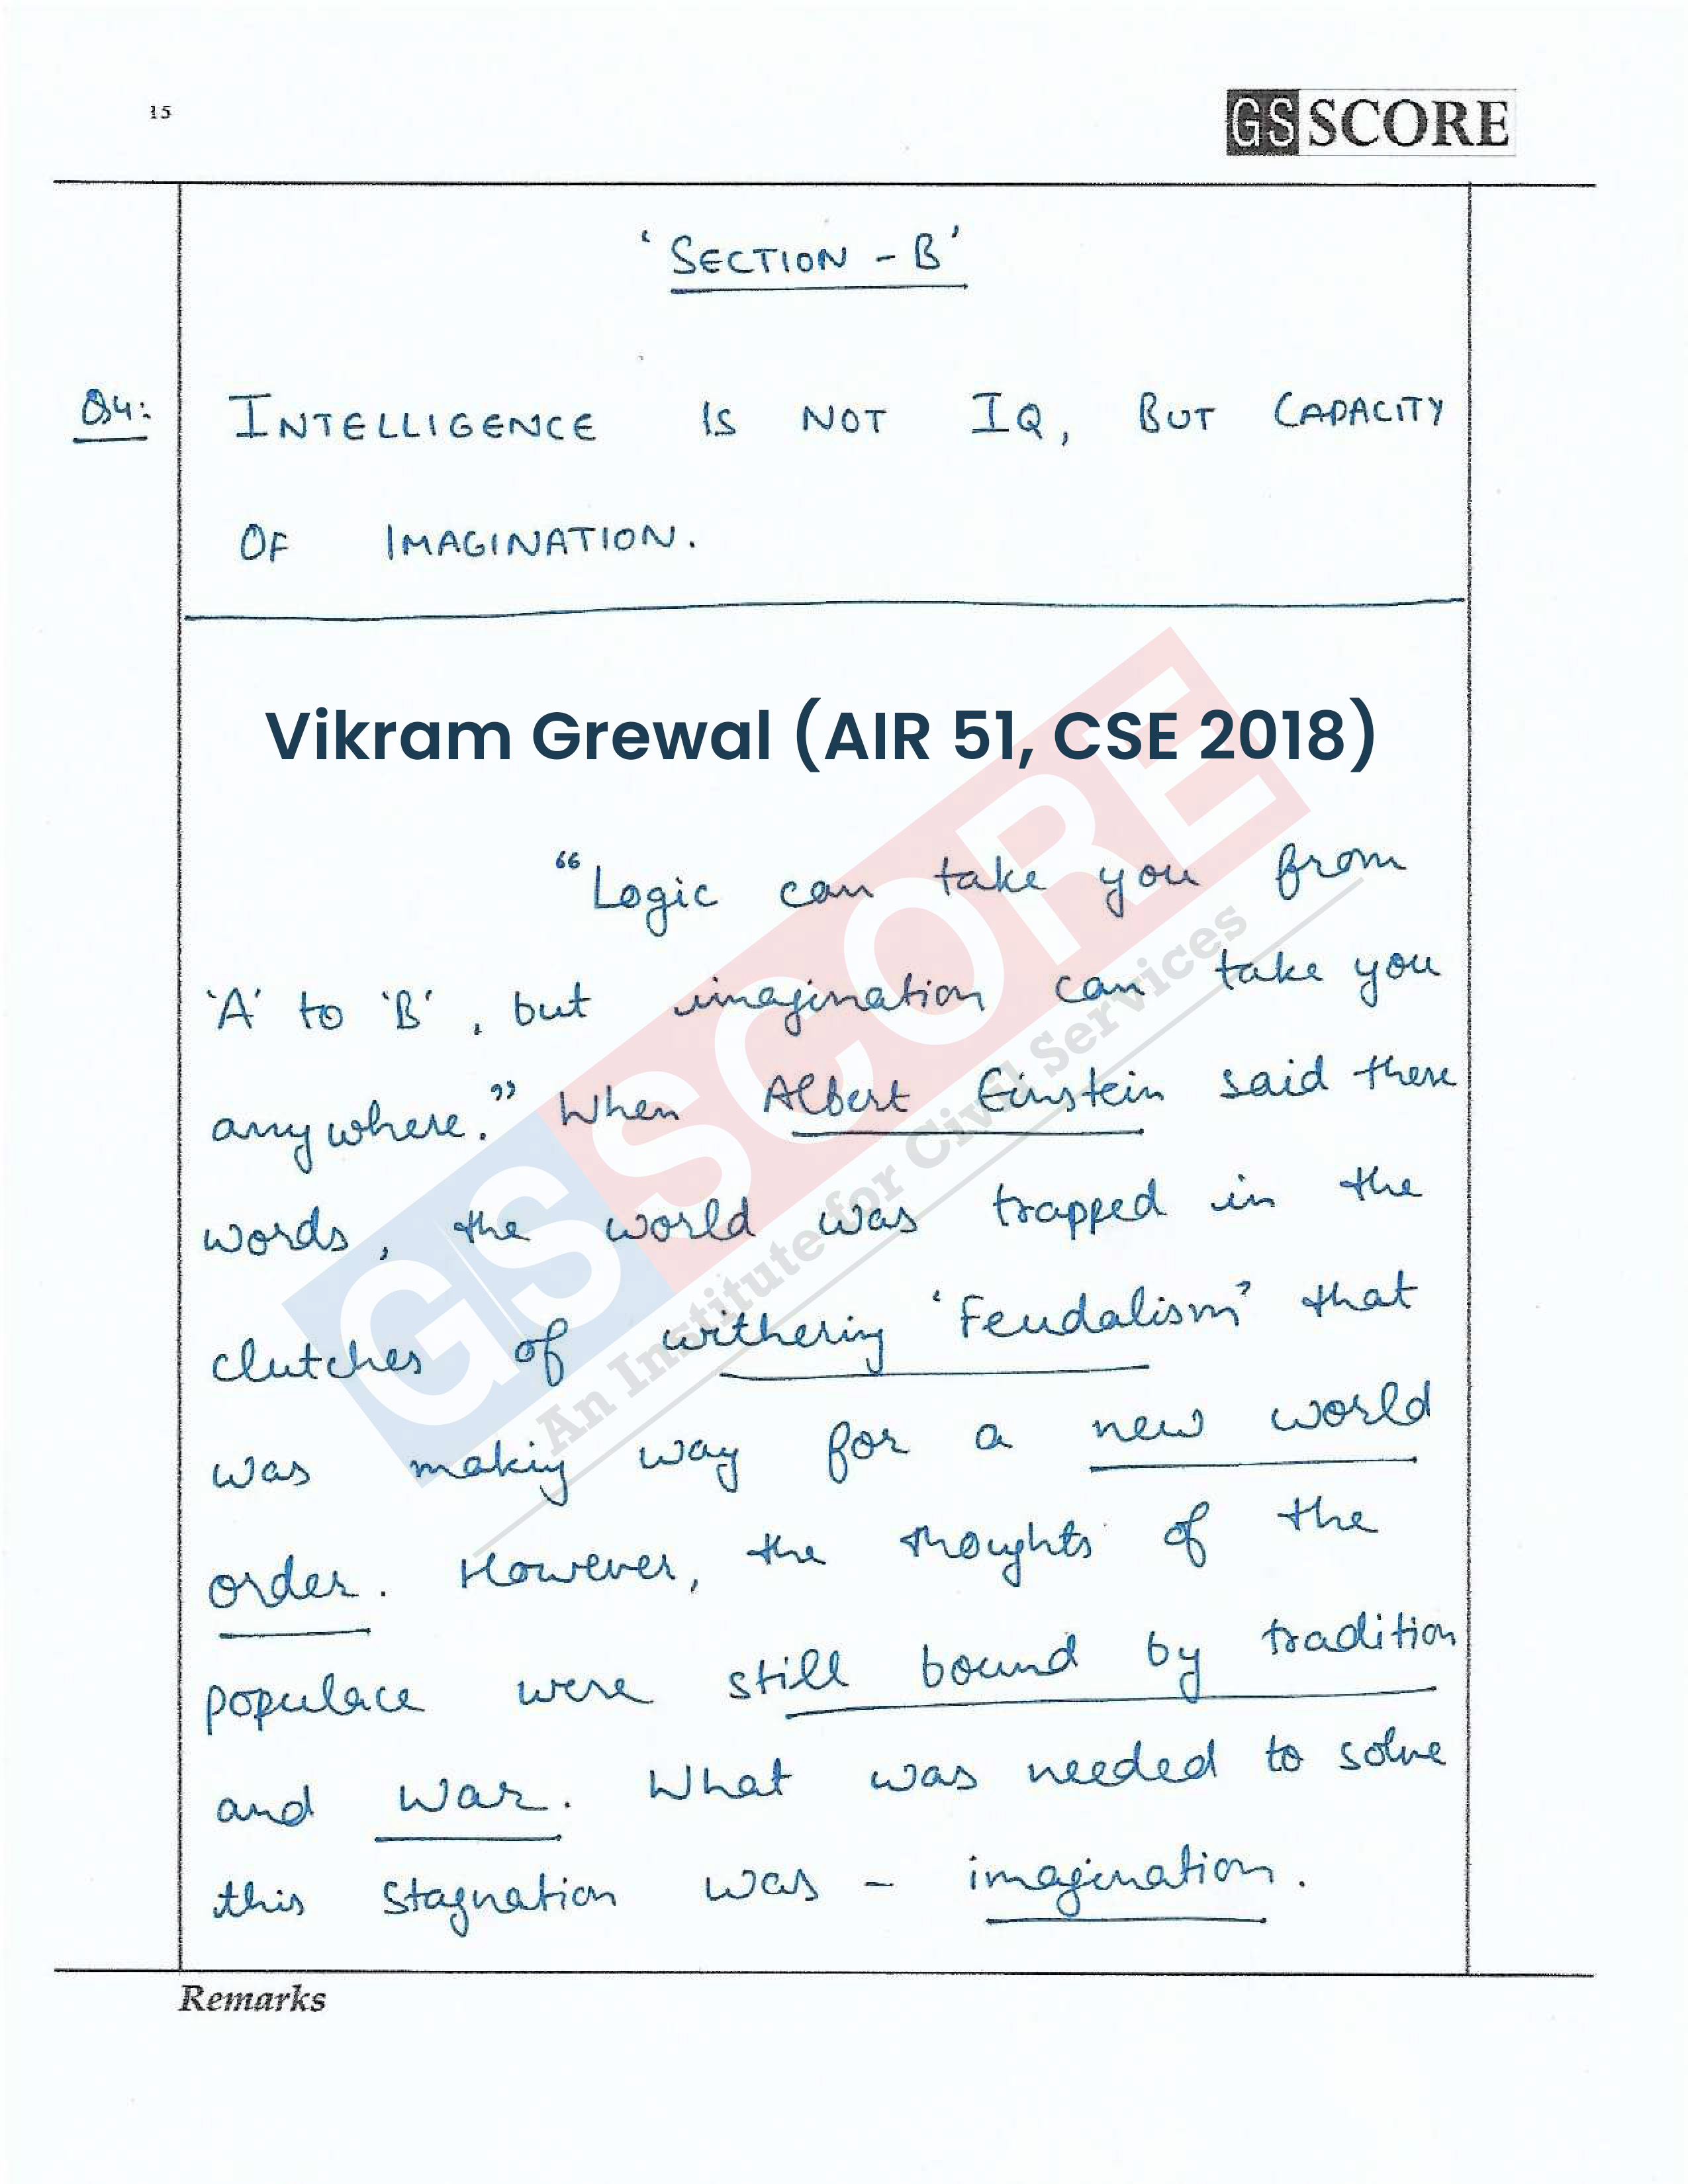 15
GS SCORE
'SECTION - B'
Q4: INTELLIGENCE IS NOT IQ, BUT CAPACITY
OF IMAGINATION.
Vikram Grewal (AIR 51, CSE 2018)
"Logic can take you from
'A' to 'B', but imagination can take you
anywhere." When Albert Einstein said these
words, the world was trapped in the
clutches of withering 'Feudalism' that
was making way for a new world
order. However, the thoughts of the
populace were still bound by tradition
and war. What was needed to solve
this stagnation was - imagination.
GS SCORE
An Institute for Civil Services
Remarks